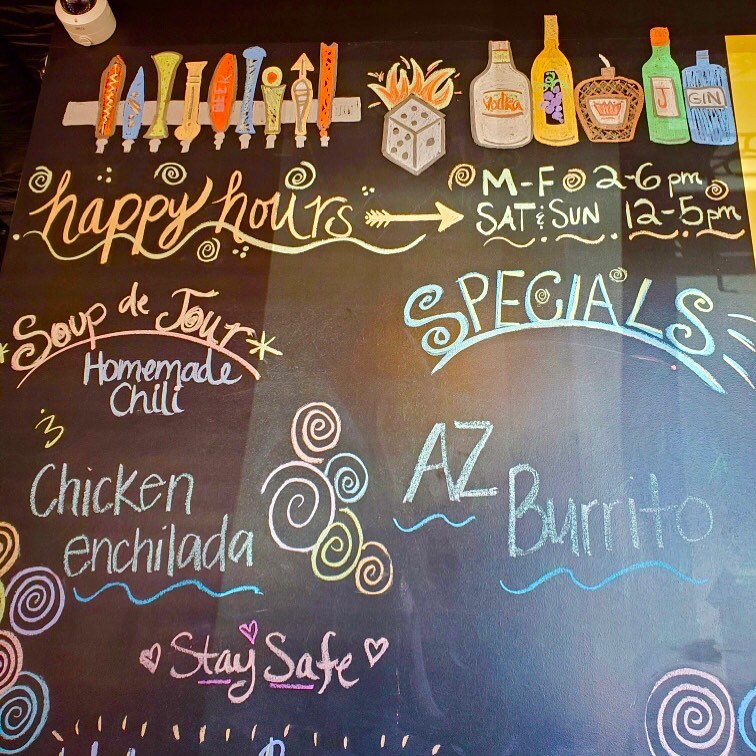 BEER
Vodka
J
GIN
happy hours
M-F 2-6 pm
SAT & SUN 12-5pm
Soup de Jour
Homemade
Chili
SPECIALS
Chicken
enchilada
AZ
Burrito
Stay Safe